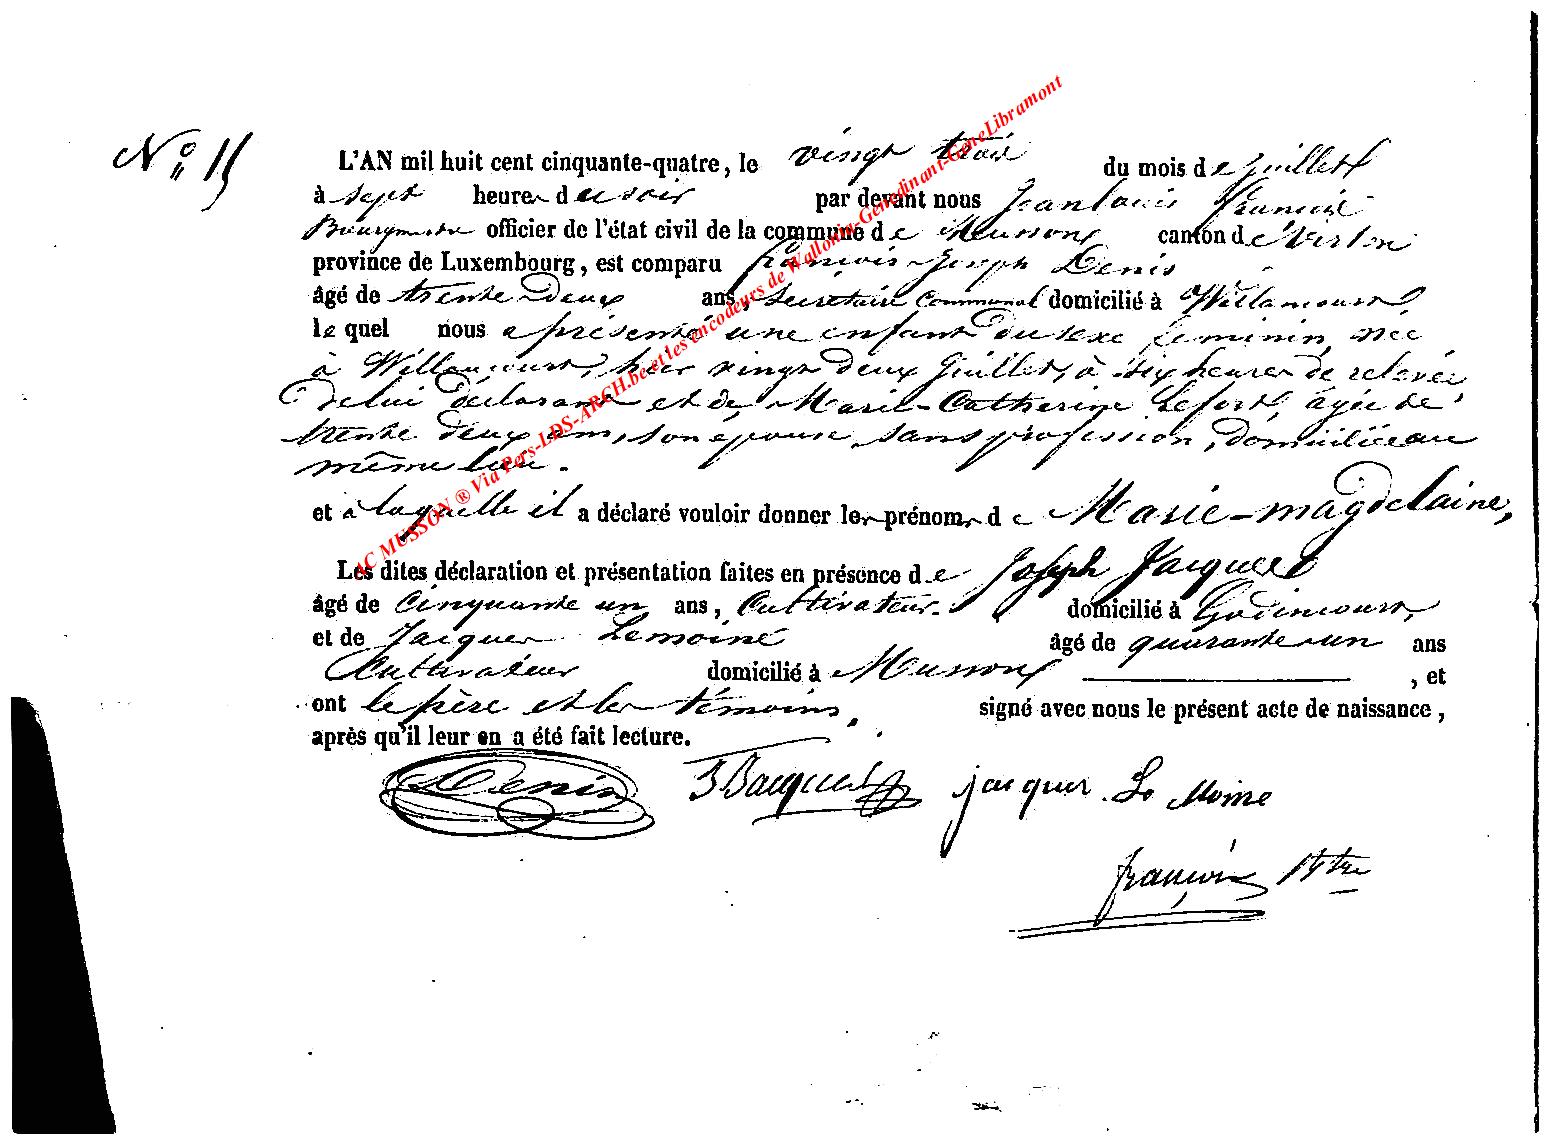 N° 15
L'AN mil huit cent cinquante-quatre, le vingt trois du mois de juillet
à sept heures du soir par devant nous Jean louis François
Bourgmestre officier de l'état civil de la commune de Musson, canton de Virton
province de Luxembourg, est comparu françois Joseph Denis
âgé de trente-deux ans, Secrétaire communal domicilié à Willancourt,
lequel nous a présenté une enfant du sexe feminin, née
à Willancourt, hier vingt deux Juillet, à six heures de relevée
de lui déclarant et de Marie-Catherine Lefort, agée de
trente deux ans, son épouse, sans profession, domiciliée au
même lieu.
et à laquelle il a déclaré vouloir donner les prénoms de Marie-magdelaine,
Les dites déclaration et présentation faites en présence de Joseph Jacquet
âgé de cinquante un ans, Cultivateur domicilié à Godincourt,
et de Jacques Lemoine âgé de quarante-un ans
Cultivateur domicilié à Musson, et
ont le père et les témoins, signé avec nous le présent acte de naissance,
après qu'il leur en a été fait lecture.
Denis jacques Le Moine
françois
AC MUSSON ® Via Pers-LDS-ARCH.be et les encodeurs de Wallonia-Genedinant-GeneLibramont